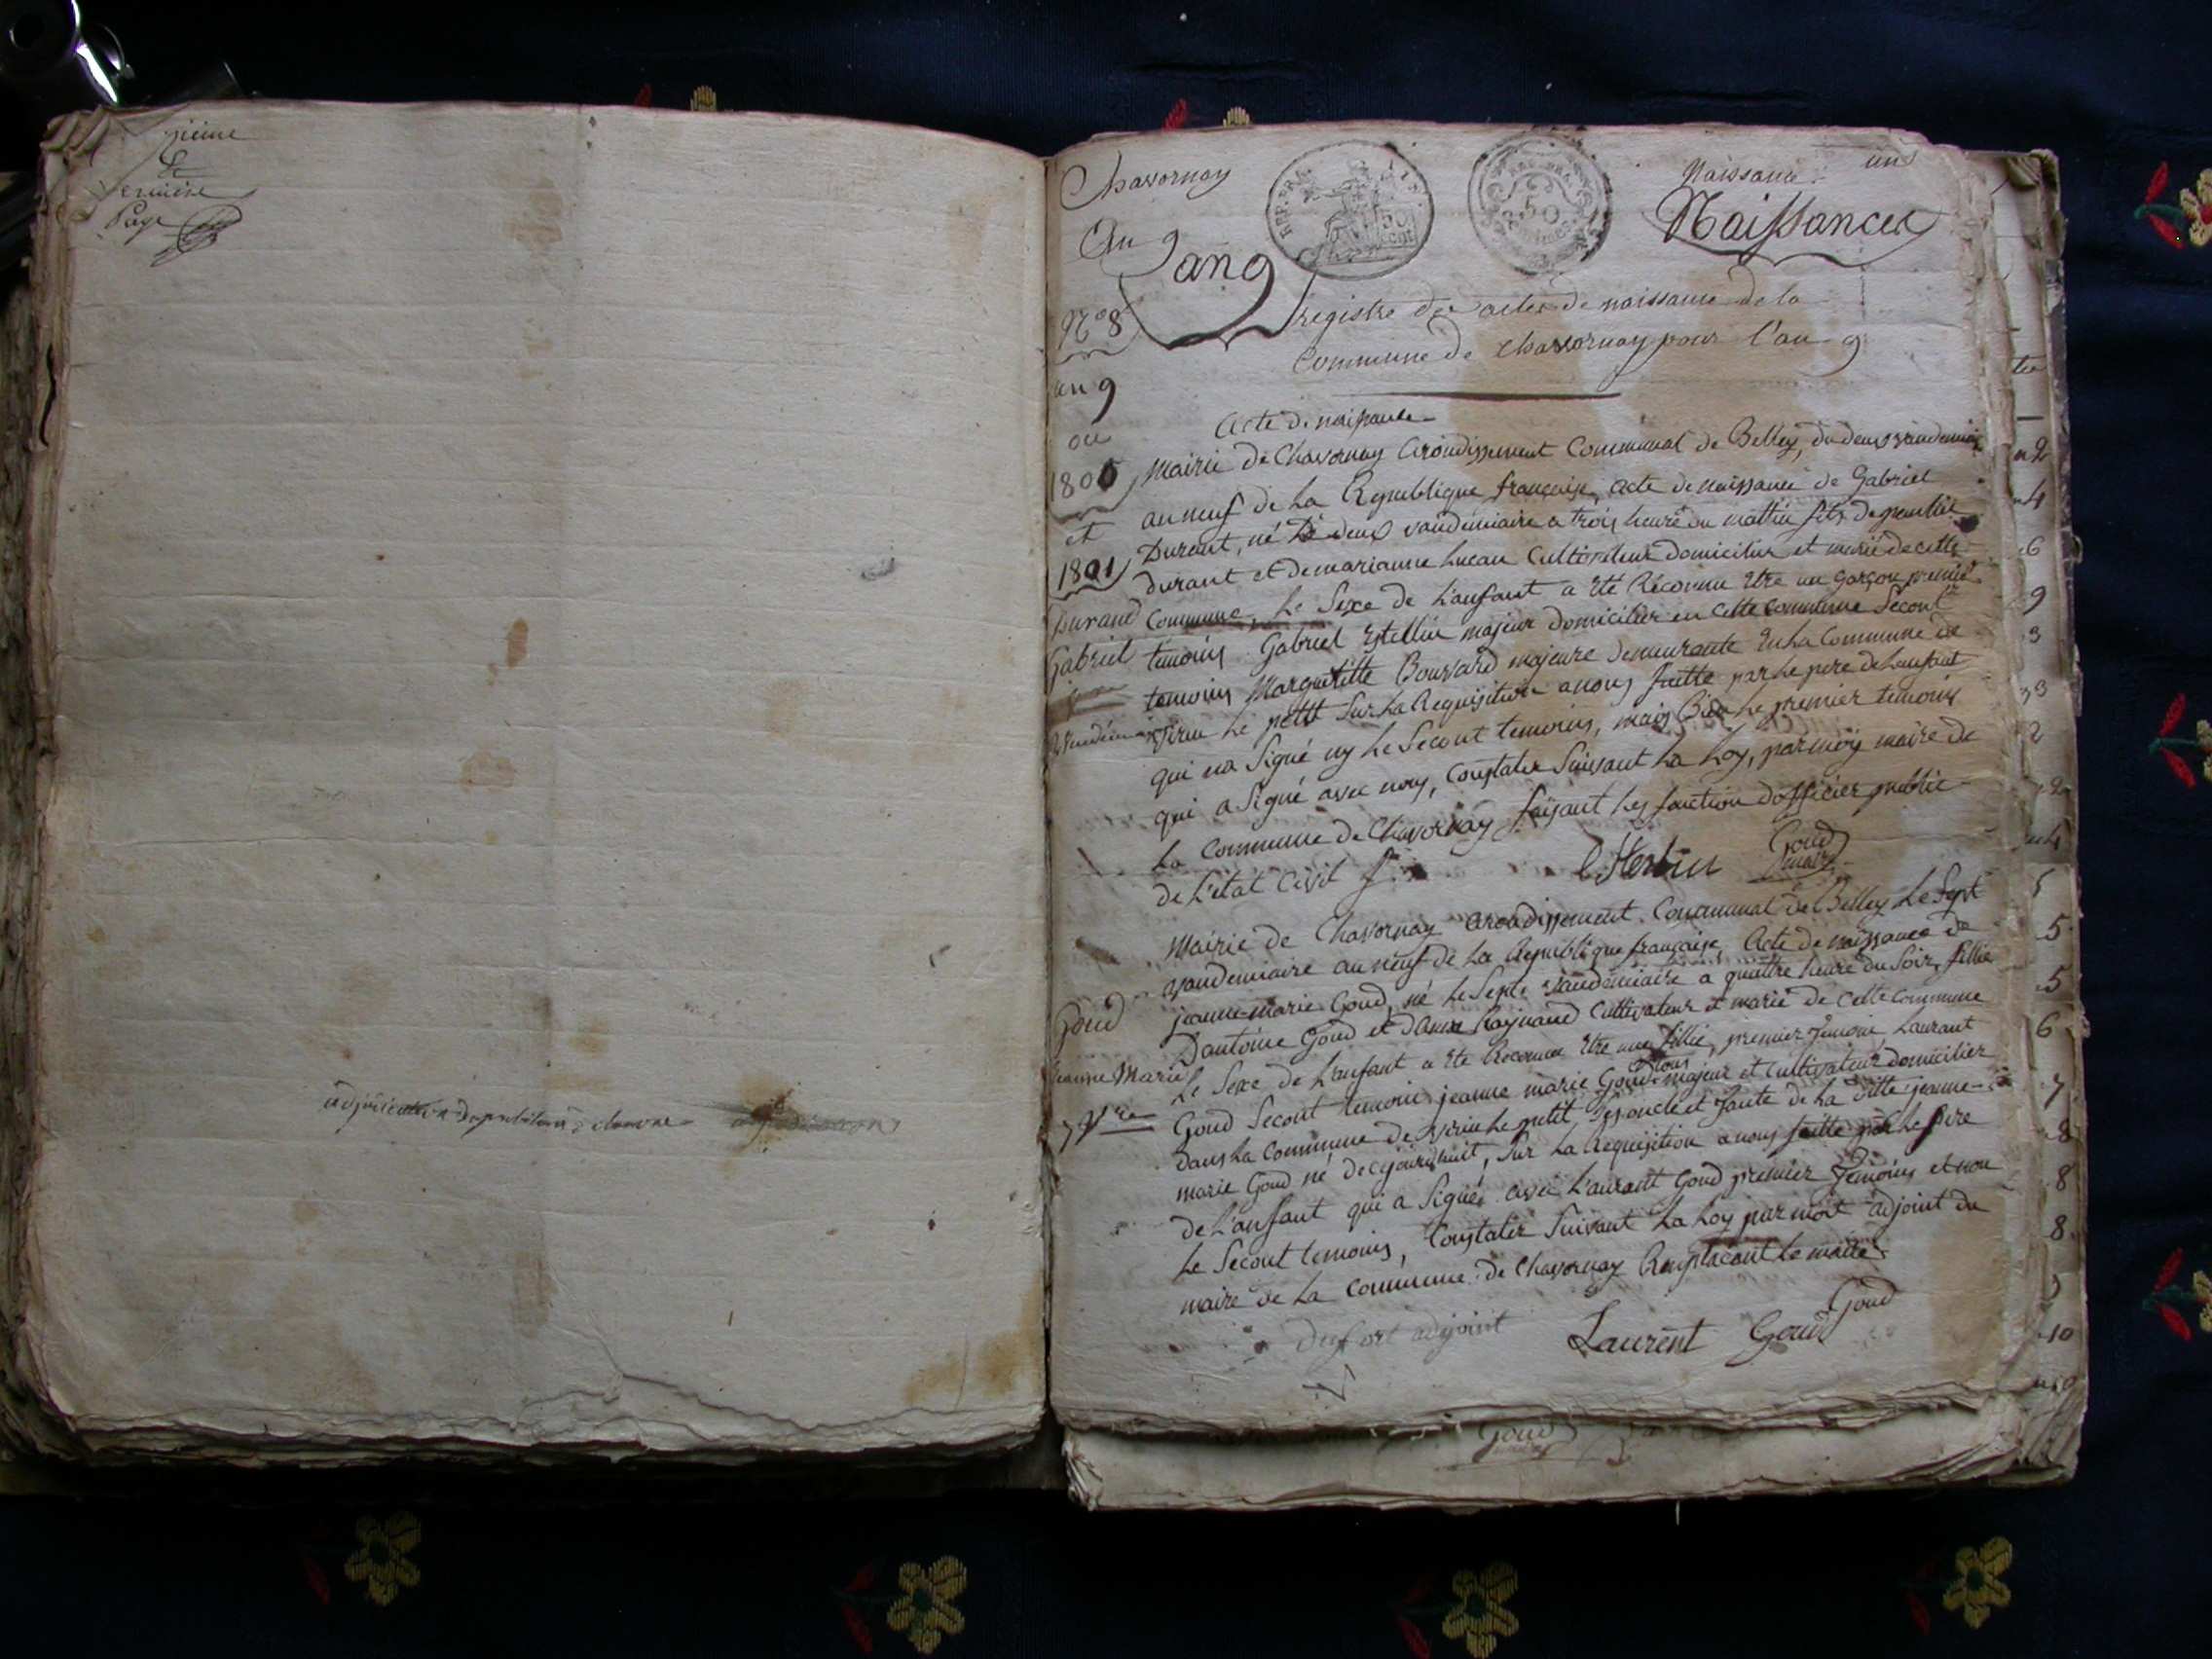 xième
&
dernière
Page
adjudication
Chavornay
An 9
an 9
N° 8
an 9
ou
1800
et
1801
REP. FRA.
50
CENT
REP. FRA.
50
Naissance
un
Naissances
registre des actes de naissance de la
Commune de chavornay pour l'an 9
Acte de naissance
Mairie de Chavornay Arondissement Communal de Belley, du deux vandemiaire
an neuf de la Republique française, acte de naissance de Gabriel
Durant, né le deux vandemiaire a trois heure du mattin fils de
durant et de marianne Lucau Cultivateur domicilier et marié de cette
Durand
Commune Le Sexe de L'anfant a été Réconnu Etre un garçon premier
Gabriel
temoins Gabriel Estellin majeur domicilier en cette commune Secont
temoins Margueritte Bouvard majeure demeurante En La Commune de
2 Vendémiaire
virieu Le petit Sur La Requisition a nous faitte par Le pere de Lanfant
qui na Signé ny Le Secont temoins, mais Bien Le premier temoins
qui a Signé avec nous, Constater Suivant La Loy, par moy maire de
La Commune de Chavornay faisant Les fonction dofficier public
de L'état Civil
Goud
maire
Mairie de Chavornay arondissement Communal de Belley Le Sept
vandemiaire an neuf de La Republique française, Acte de naissance de
Goud
jeanne-marie Goud, né Le Septe vandemiaire a quattre heure du Soir, fillie
Dantoine Goud et danne Raynaud Cultivateur et marié de Cette Commune
Jeanne Marie
Le Sexe de L'anfant a Ete Reconnu Etre une fillie, premier Temoin Laurant
7 Vre
Goud Secont temoins jeanne marie Goud tous majeur et Cultivateur domicilier
dans La Commune de virieu Le petit Ses oncle et Tante de La ditte jeanne-
marie Goud né de cejourdhuit, Sur La Requisition a nous faitte par Le pere
de L'anfant qui a Signer avec Laurant Goud premier Temoins et non
Le Secont temoins, Constater Suivant La Loy par moit adjoint du
maire de La Commune de Chavornay Remplacant Le maire
Goud
Dufort adjoint
Laurent Goud
Goud